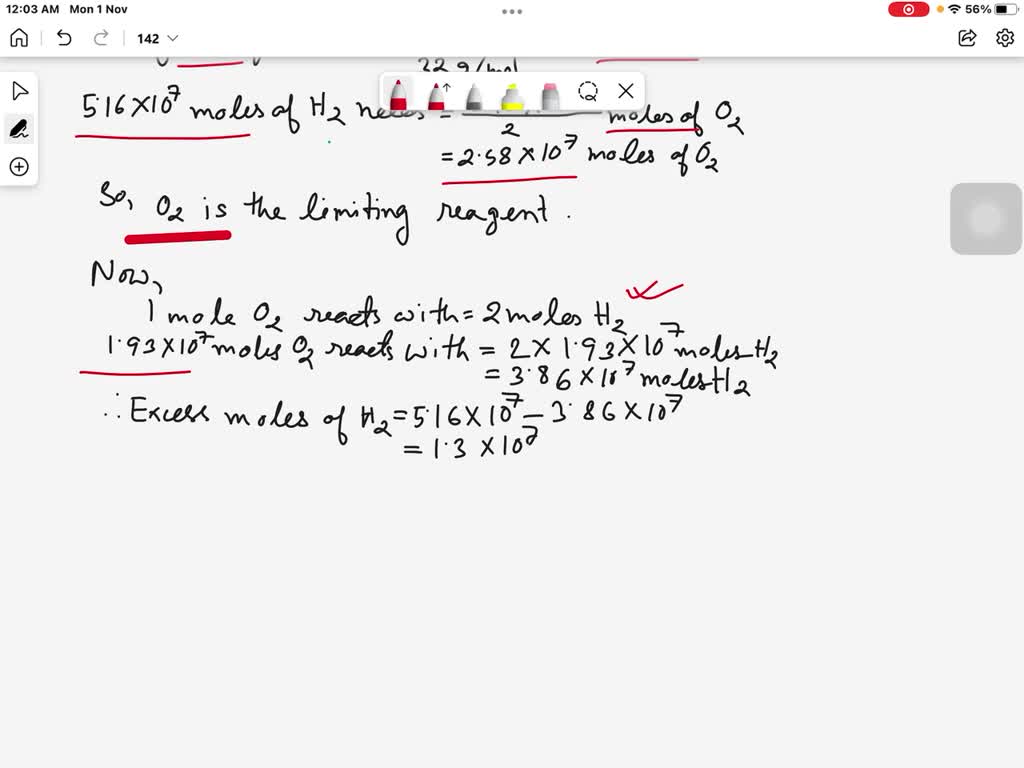 12:03 AM Mon 1 Nov
56%
142
32 g/mol
5.16 × 10⁷ moles of H₂ needs = 2 moles of O₂
= 2.58 × 10⁷ moles of O₂
So, O₂ is the limiting reagent.
Now,
1 mole O₂ reacts with = 2 moles H₂
1.93 × 10⁷ moles O₂ reacts with = 2 × 1.93 × 10⁷ moles H₂
= 3.86 × 10⁷ moles H₂
∴ Excess moles of H₂ = 5.16 × 10⁷ – 3.86 × 10⁷
= 1.3 × 10⁷